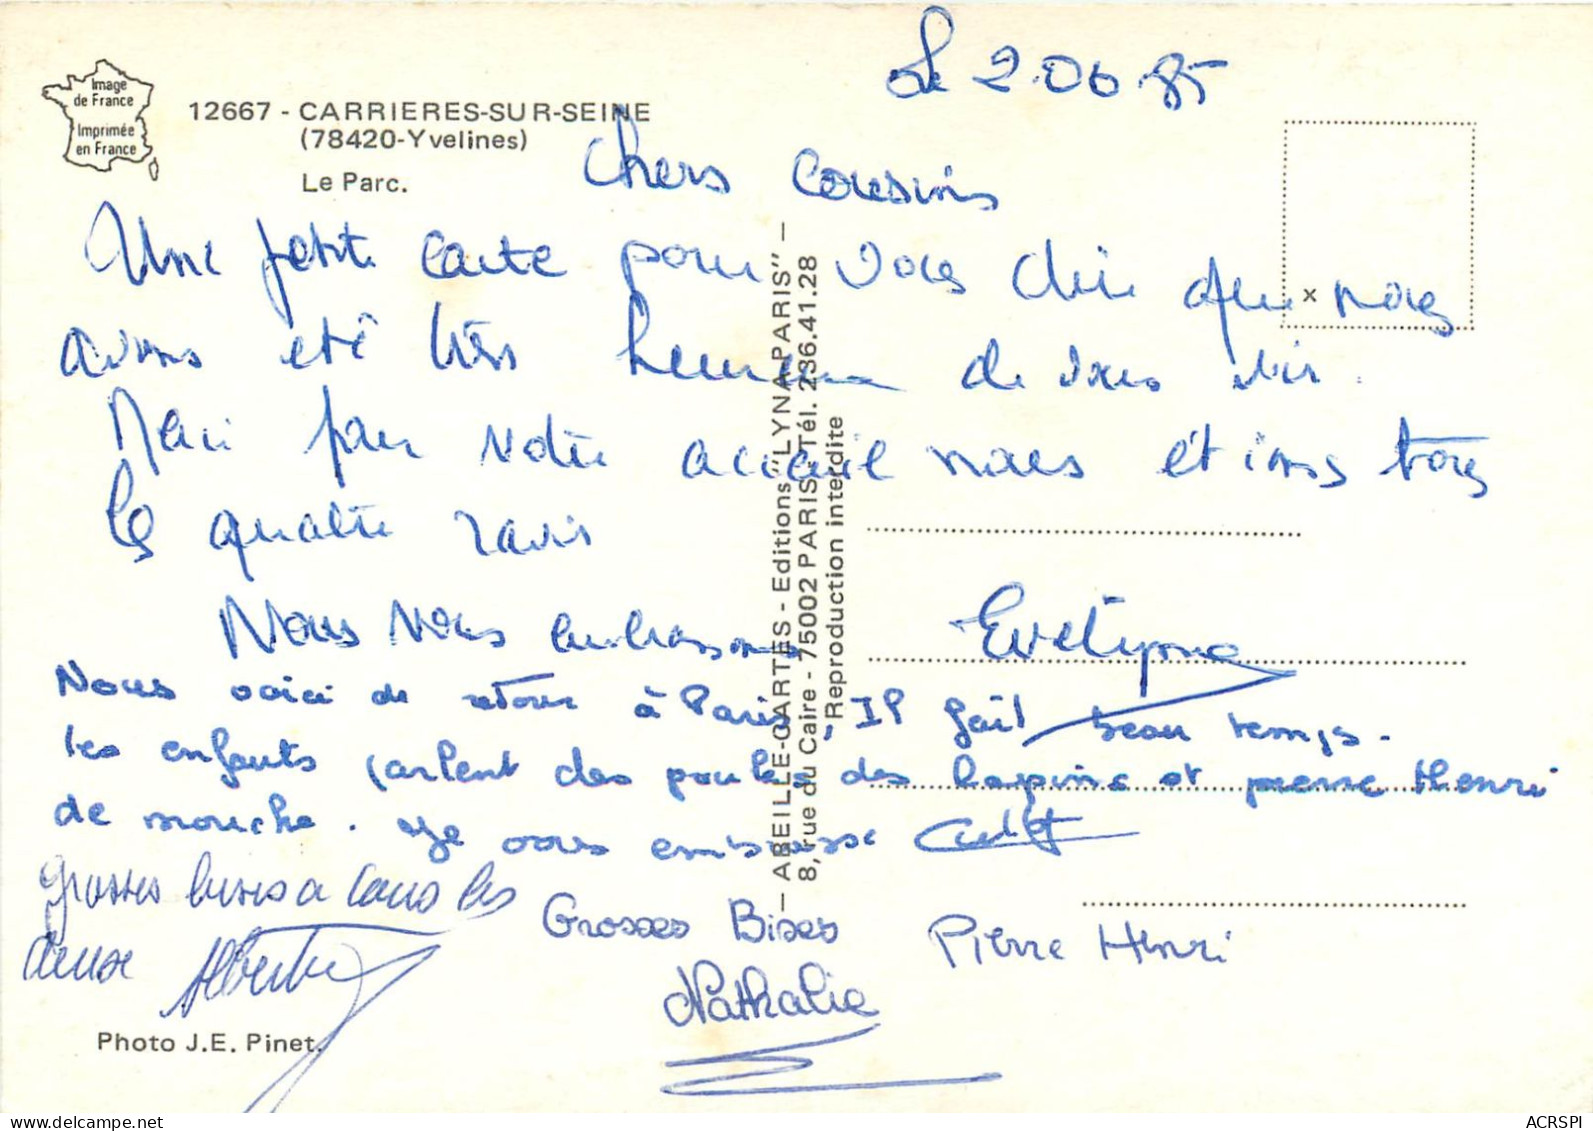 Le 2.06.85
Image
de France
Imprimée
en France
12667 - CARRIERES-SUR-SEINE
(78420-Yvelines)
Le Parc.
Chers cousins
Une petite carte pour vous dire que nous
avons été très heureux de vous voir.
Merci pour votre accueil nous étions tous
les quatre ravis
Nous vous embrassons Evelyne
Nous voici de retour à Paris, Il fait beau temps.
les enfants parlent des poules des lapins et pierre Henri
de mouche. Je vous embrasse
grosses bises a tous les
deux Albertine
Grosses Bises Pierre Henri
Nathalie
Photo J.E. Pinet.
— ABEILLE-CARTES - Editions "LYNA-PARIS" —
8, rue du Caire - 75002 PARIS - Tél. 236.41.28
Reproduction interdite
x
delcampe.net
ACRSPI